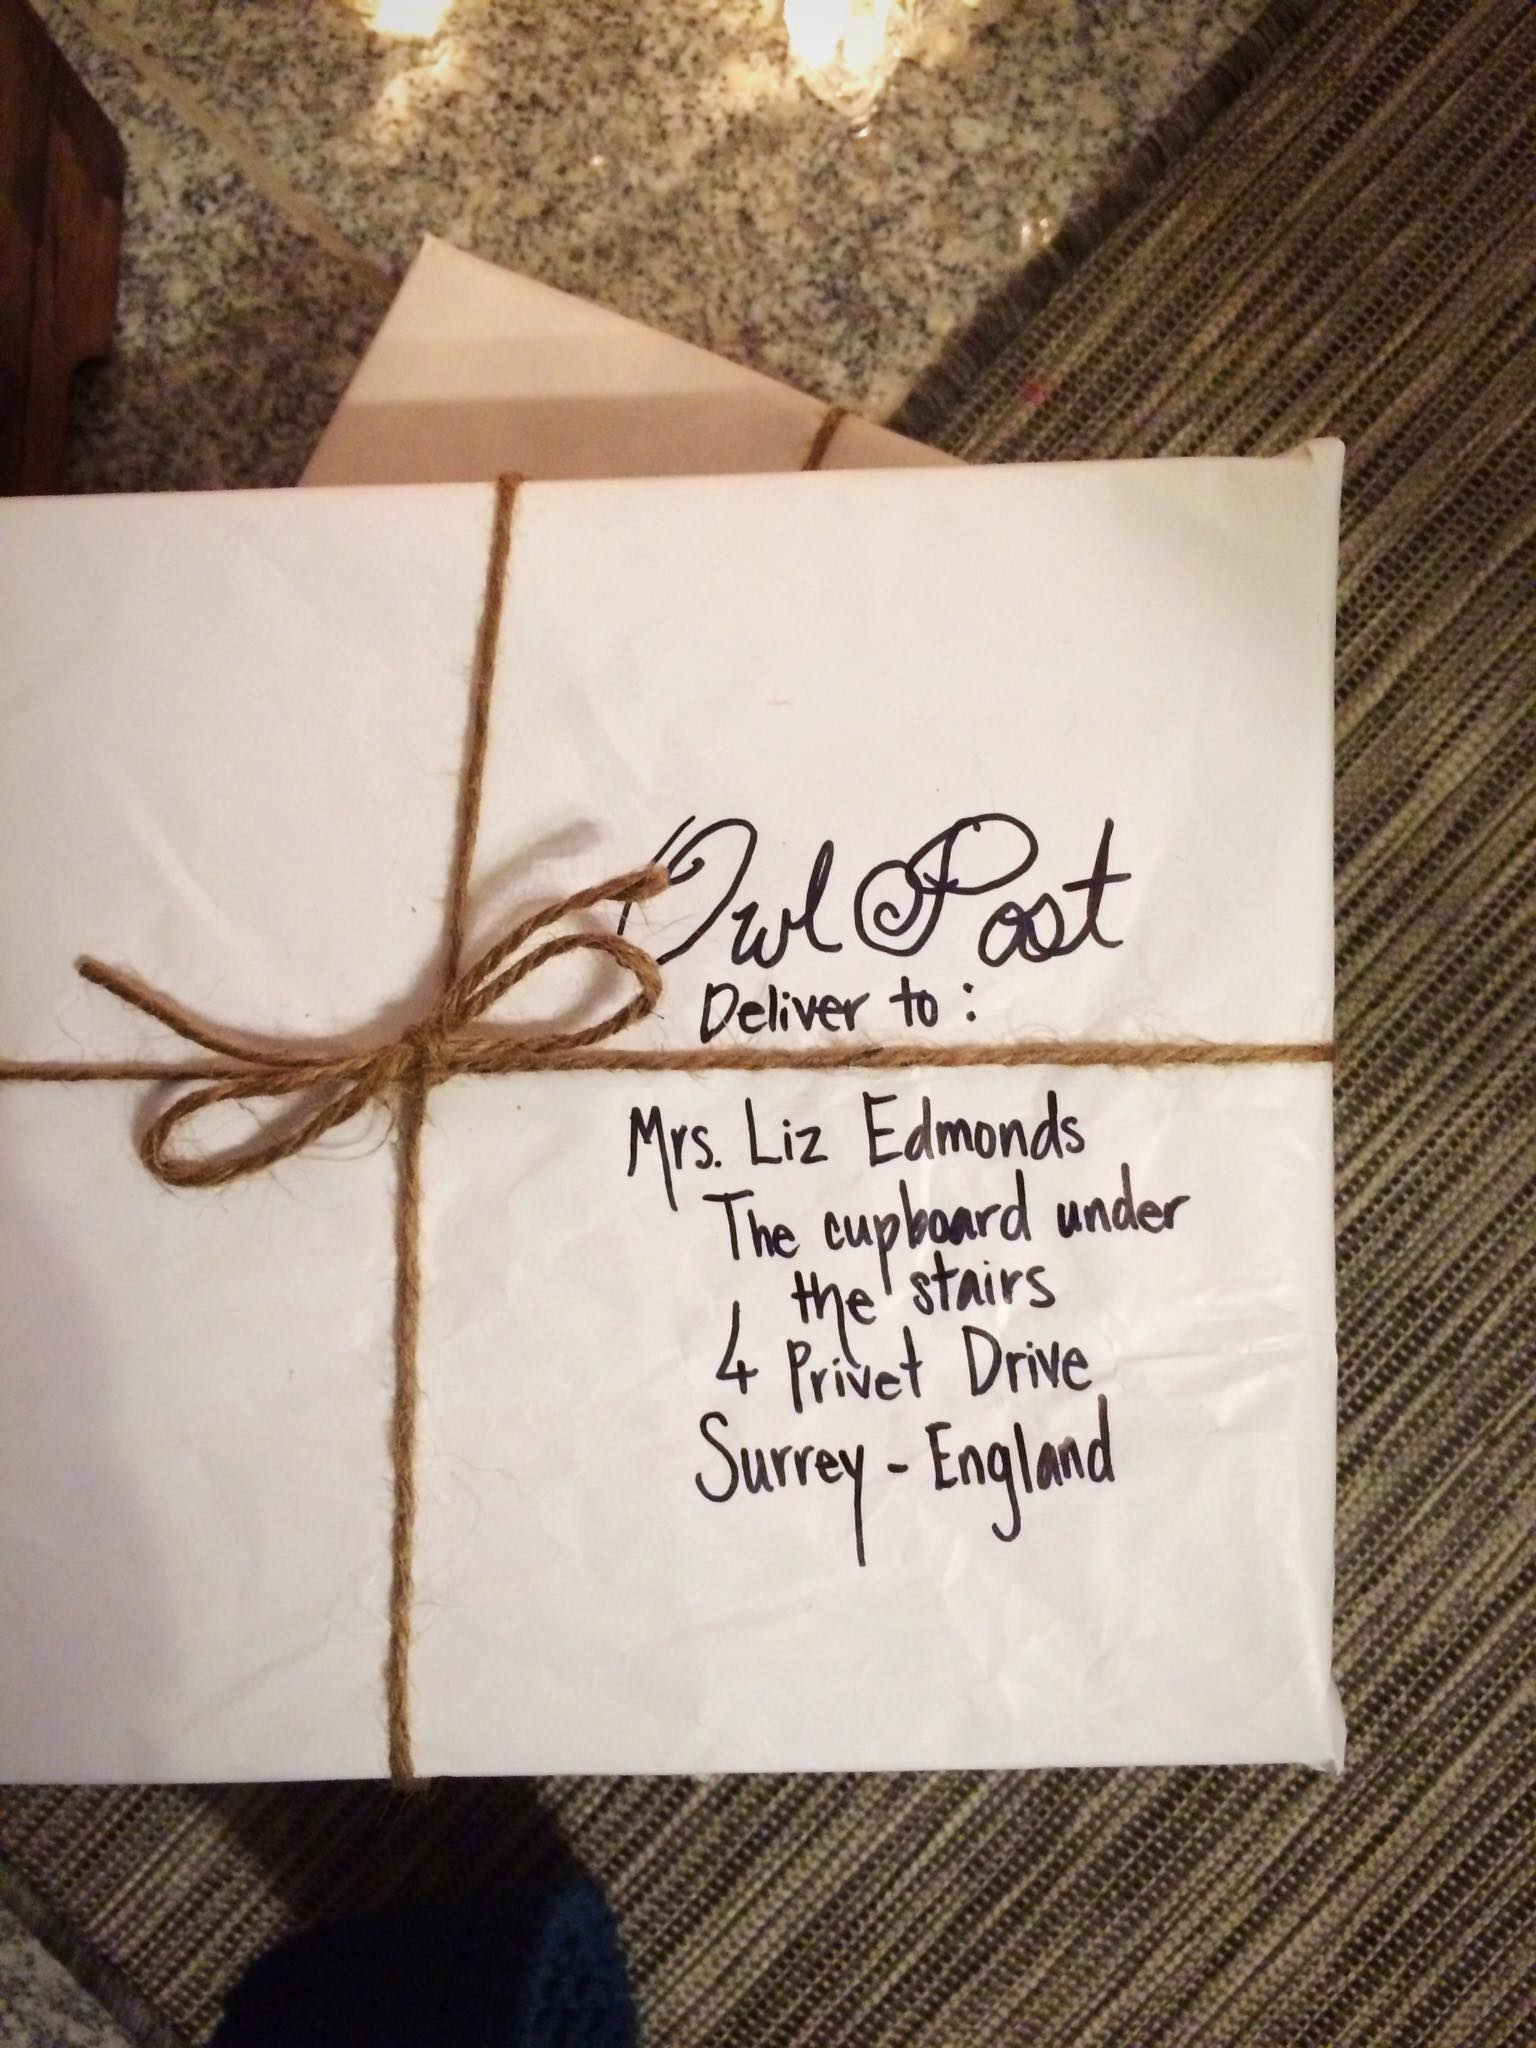 Owl Post
Deliver to:
Mrs. Liz Edmonds
The cupboard under
the stairs
4 Privet Drive
Surrey - England